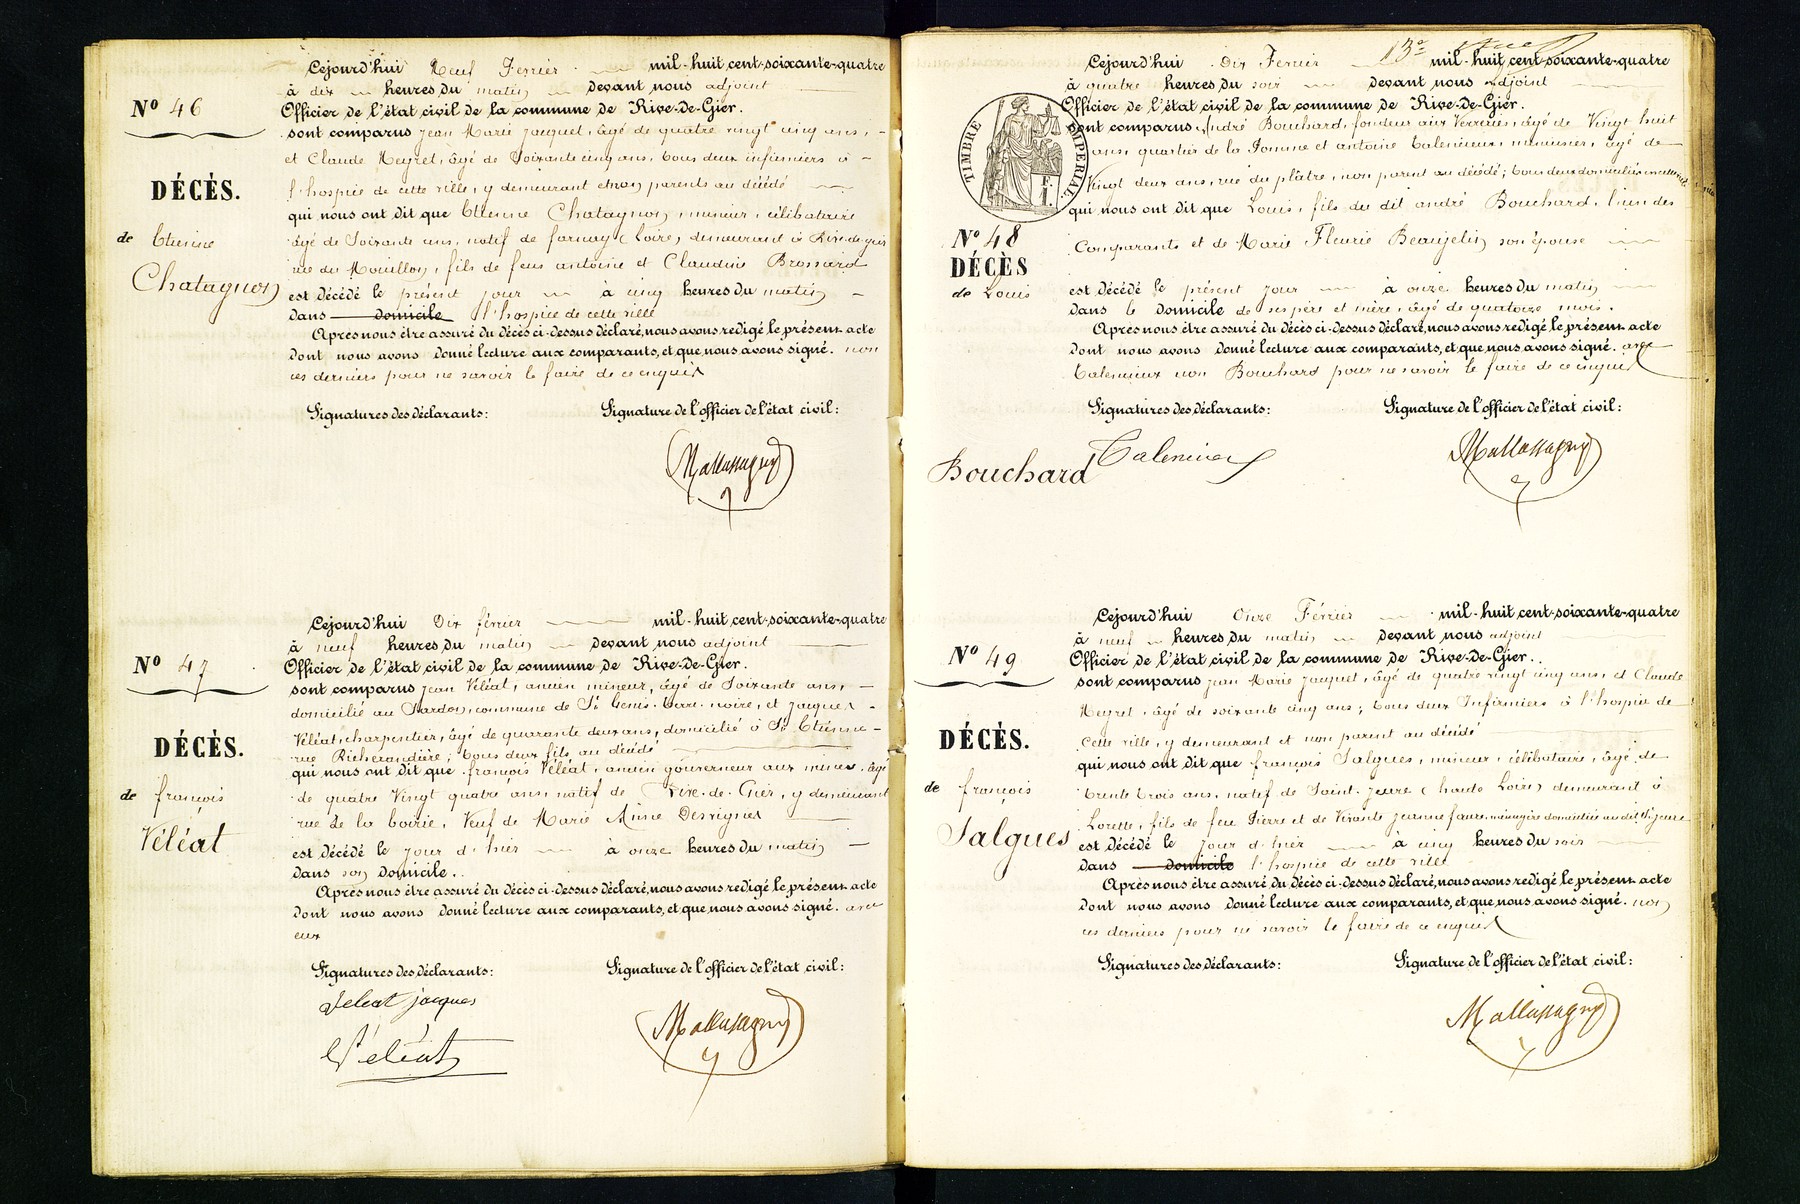 Cejourd'hui Neuf Ferrier mil-huit cent-soixante-quatre
à dix heures du matin devant nous adjoint
Nº 46
Officier de l'état civil de la commune de Rive-de-Gier.
sont comparus jean Marie jacquet, âgé de quatre vingt cinq ans,
et Claude Neyret, âgé de Soixante cinq ans, tous deux infirmiers à
DÉCÈS.
l'hospice de cette ville, y demeurant et non parents au décédé
qui nous ont dit que Etienne Chatagnon, mineur, célibataire
de Etienne
âgé de Soixante ans, natif de farnay (Loire, demeurant à Rive-de-gier
Chatagnon
rue du Mouillon, fils de feus antoine et Claudine Brossard
est décédé le présent jour à cinq heures du matin
dans domicile l'hospice de cette ville
Après nous être assuré du décès ci-dessus déclaré, nous avons redigé le présent acte
dont nous avons donné lecture aux comparants, et que nous avons signé. non
ces derniers pour ne savoir le faire de ce enquis
Signatures des déclarants: Signature de l'officier de l'état civil:
Cejourd'hui Dix février mil-huit cent-soixante-quatre
à neuf heures du matin devant nous adjoint
Nº 47
Officier de l'état civil de la commune de Rive-de-Gier.
sont comparus jean Véléat, ancien mineur, âgé de Soixante ans,
domicilié au Sardon, commune de St Genis-terre-noire, et jacques
Véléat, charpentier, âgé de quarante deux ans, domicilié à St Etienne
DÉCÈS.
rue Richerandière; tous deux fils au décédé
qui nous ont dit que françois Véléat, ancien gouverneur aux mines, âgé
de françois
de quatre Vingt quatre ans, natif de Rive-de-Gier, y demeurant
Véléat
rue de la boirie, Veuf de Marie Anne Desvignes
est décédé le jour d'hier à onze heures du matin
dans son domicile.
Après nous être assuré du décès ci-dessus déclaré, nous avons redigé le présent acte
dont nous avons donné lecture aux comparants, et que nous avons signé. avec
eux
Signatures des déclarants: Signature de l'officier de l'état civil:
Veleat jacques
Véléat
13e
Cejourd'hui Dix Ferrier mil-huit cent-soixante-quatre
à quatre heures du soir devant nous adjoint
TIMBRE IMPERIAL
F. 1.
Officier de l'état civil de la commune de Rive-de-Gier.
sont comparus André Bouchard, fondeur aux Verreries, âgé de Vingt huit
ans, quartier de la Pomme et antoine Talenieux, menuisier, âgé de
Vingt deux ans, rue du plâtre, non parent au décédé; tous deux domiciliés
qui nous ont dit que Louis, fils du dit andré Bouchard, l'un des
Nº 48
comparants et de Marie Fleurie Beaujelin son épouse
DÉCÈS
de Louis
est décédé le présent jour à onze heures du matin
dans le domicile de ses père et mère, âgé de quatorze mois.
Après nous être assuré du décès ci-dessus déclaré, nous avons redigé le présent acte
dont nous avons donné lecture aux comparants, et que nous avons signé. avec
Talenieux non Bouchard pour ne savoir le faire de ce enquis
Signatures des déclarants: Signature de l'officier de l'état civil:
Bouchard
Talenieux
Cejourd'hui Onze Férrier mil-huit cent-soixante-quatre
à neuf heures du matin devant nous adjoint
Nº 49
Officier de l'état civil de la commune de Rive-de-Gier.
sont comparus jean Marie jacquet, âgé de quatre vingt cinq ans, et Claude
Neyret, âgé de soixante cinq ans; tous deux Infirmiers à l'hospice de
DÉCÈS.
cette ville, y demeurant et non parent au décédé
qui nous ont dit que françois Salgues, mineur, célibataire, âgé de
de françois
trente trois ans, natif de Saint-jeure (haute Loire) demeurant à
Salgues
Lorette, fils de feu Pierre et de Vivante jeanne faure, ménagère domiciliée au dit St jeure
est décédé le jour d'hier à cinq heures du soir
dans domicile l'hospice de cette ville
Après nous être assuré du décès ci-dessus déclaré, nous avons redigé le présent acte
dont nous avons donné lecture aux comparants, et que nous avons signé. non
ces derniers pour ne savoir le faire de ce enquis
Signatures des déclarants: Signature de l'officier de l'état civil: